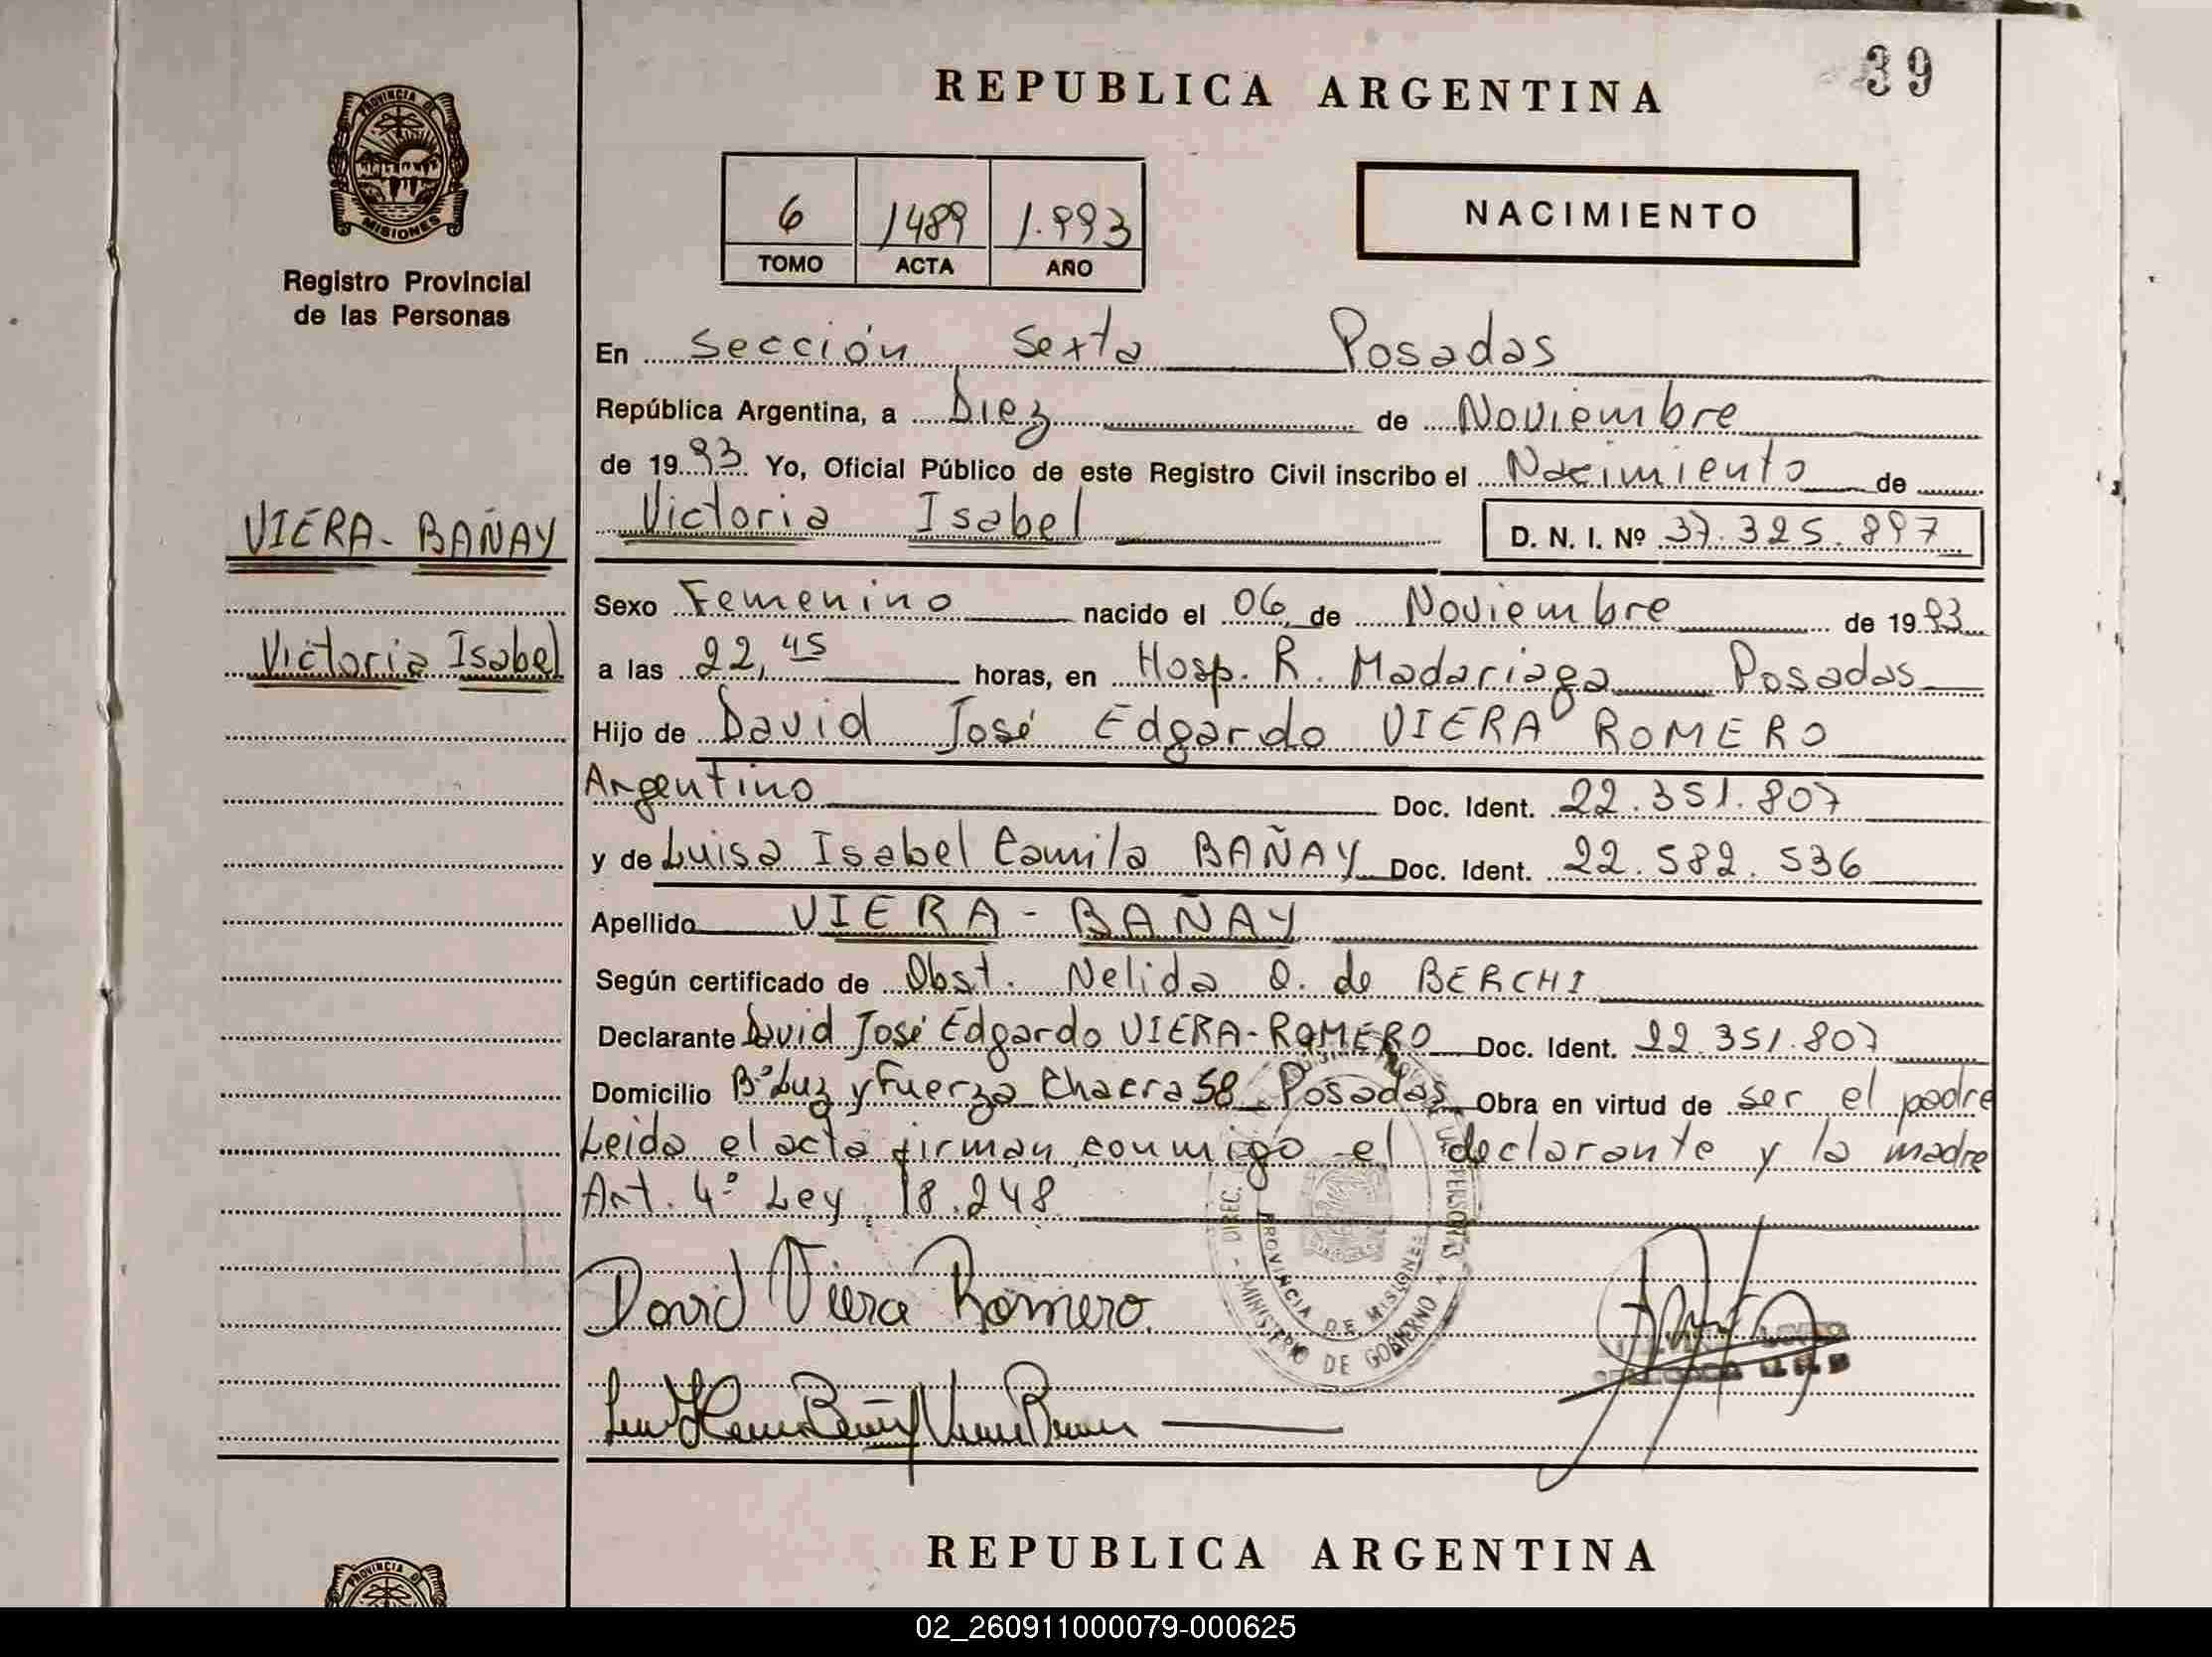 REPUBLICA ARGENTINA
39
PROVINCIA DE
MISIONES
Registro Provincial
de las Personas
6 1489 1.993
TOMO ACTA AÑO
NACIMIENTO
En Sección Sexta Posadas
República Argentina, a Diez de Noviembre
de 1993 Yo, Oficial Público de este Registro Civil inscribo el Nacimiento de
VIERA-BAÑAY
Victoria Isabel D. N. I. Nº 37.325.897
Sexo Femenino nacido el 06 de Noviembre de 1993
Victoria Isabel
a las 22,45 horas, en Hosp. R. Madariaga Posadas
Hijo de David José Edgardo VIERA ROMERO
Argentino Doc. Ident. 22.351.807
y de Luisa Isabel Camila BAÑAY Doc. Ident. 22.582.536
Apellido VIERA - BAÑAY
Según certificado de Obst. Nelida O. de BERCHI
Declarante David José Edgardo VIERA-ROMERO Doc. Ident. 22.351.807
Domicilio Bº Luz y Fuerza Chacra 58 Posadas Obra en virtud de ser el padre
Leida el acta firman conmigo el declarante y la madre
Art. 4º Ley 18.248
David Viera Romero
PROVINCIA DE MISIONES
MINISTERIO DE GOBIERNO
REPUBLICA ARGENTINA
PROVINCIA D
02_260911000079-000625